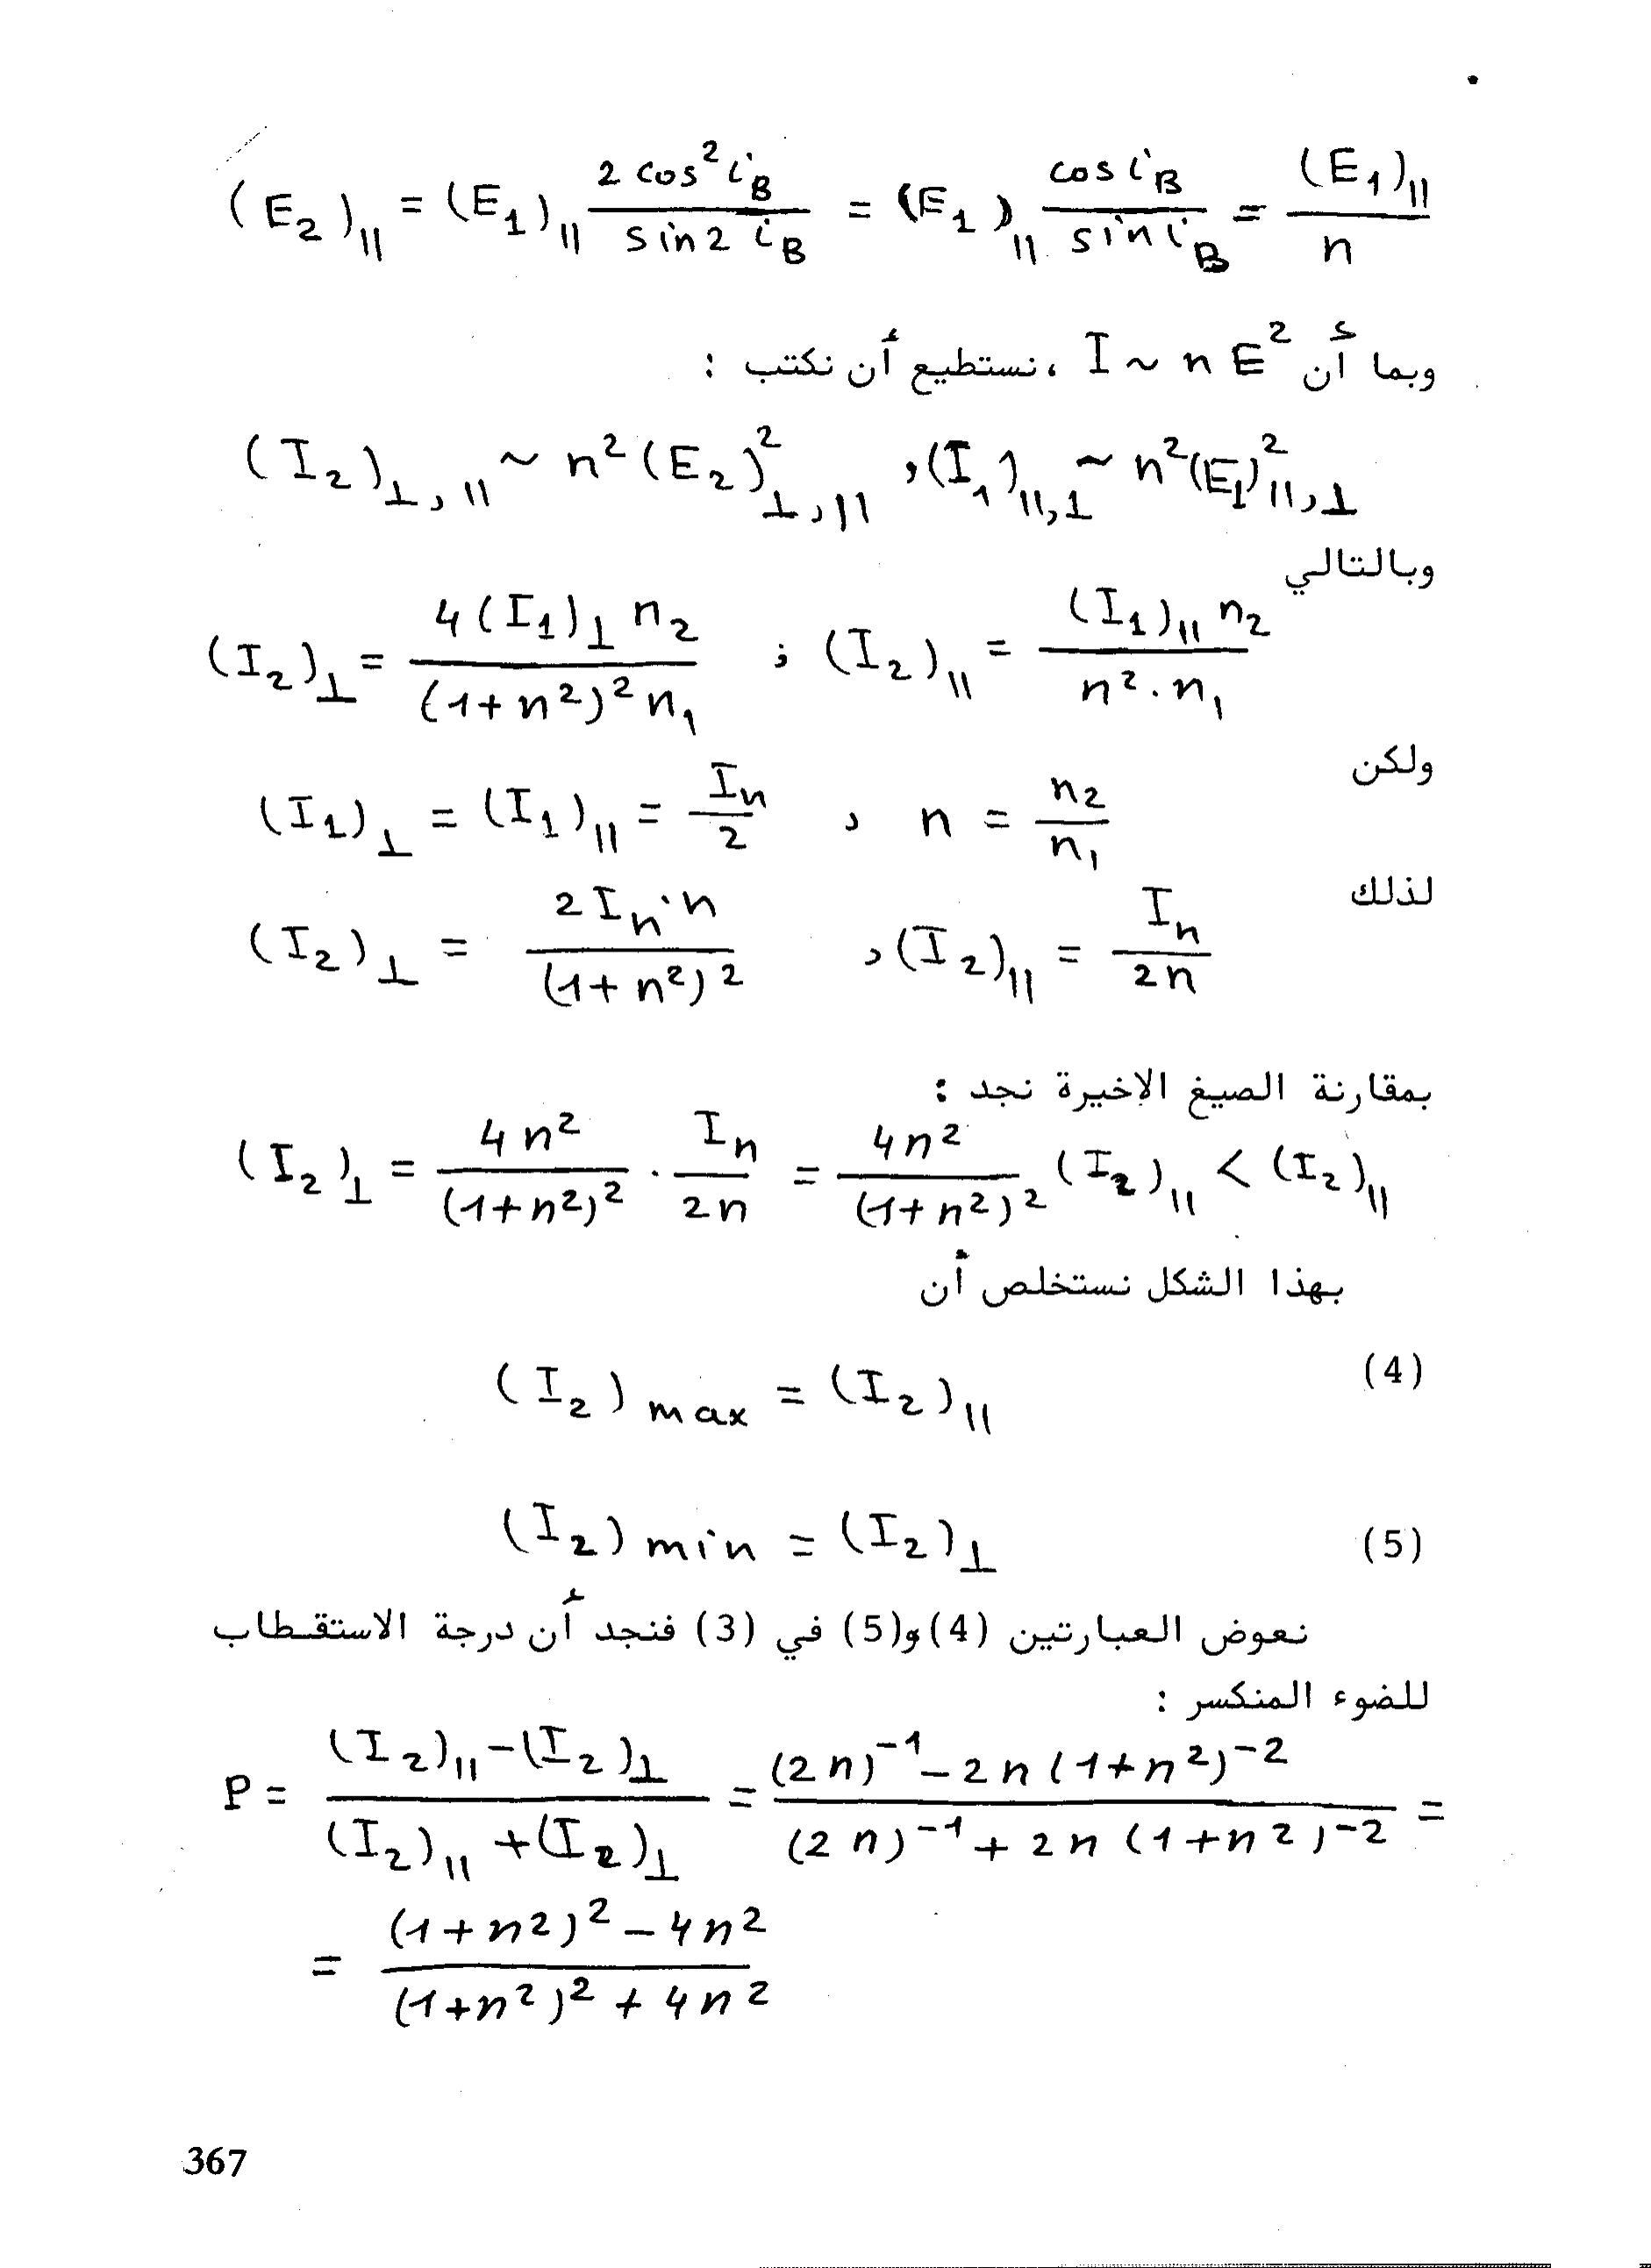 (E₂)∥ = (E₁)∥ 2 cos² i_B / sin 2 i_B = (E₁)∥ cos i_B / sin i_B = (E₁)∥ / n
وبما أن I ~ n E² ، نستطيع أن نكتب :
(I₂)⊥,∥ ~ n² (E₂)²⊥,∥ , (I₁)∥,⊥ ~ n² (E₁)²∥,⊥
وبالتالي
(I₂)⊥ = 4 (I₁)⊥ n₂ / (1+n²)² n₁ ; (I₂)∥ = (I₁)∥ n₂ / n² . n₁
ولكن
(I₁)⊥ = (I₁)∥ = Iₙ / 2 , n = n₂ / n₁
لذلك
(I₂)⊥ = 2 Iₙ · n / (1+n²)² , (I₂)∥ = Iₙ / 2n
بمقارنة الصيغ الاخيرة نجد :
(I₂)⊥ = 4n² / (1+n²)² . Iₙ / 2n = 4n² / (1+n²)² (I₂)∥ < (I₂)∥
بهذا الشكل نستخلص أن
(I₂) max = (I₂)∥ (4)
(I₂) min = (I₂)⊥ (5)
نعوض العبارتين (4) و(5) في (3) فنجد أن درجة الاستقطاب
للضوء المنكسر :
P = (I₂)∥ - (I₂)⊥ / (I₂)∥ + (I₂)⊥ = (2n)⁻¹ - 2n (1+n²)⁻² / (2n)⁻¹ + 2n (1+n²)⁻² =
= (1+n²)² - 4n² / (1+n²)² + 4n²
367